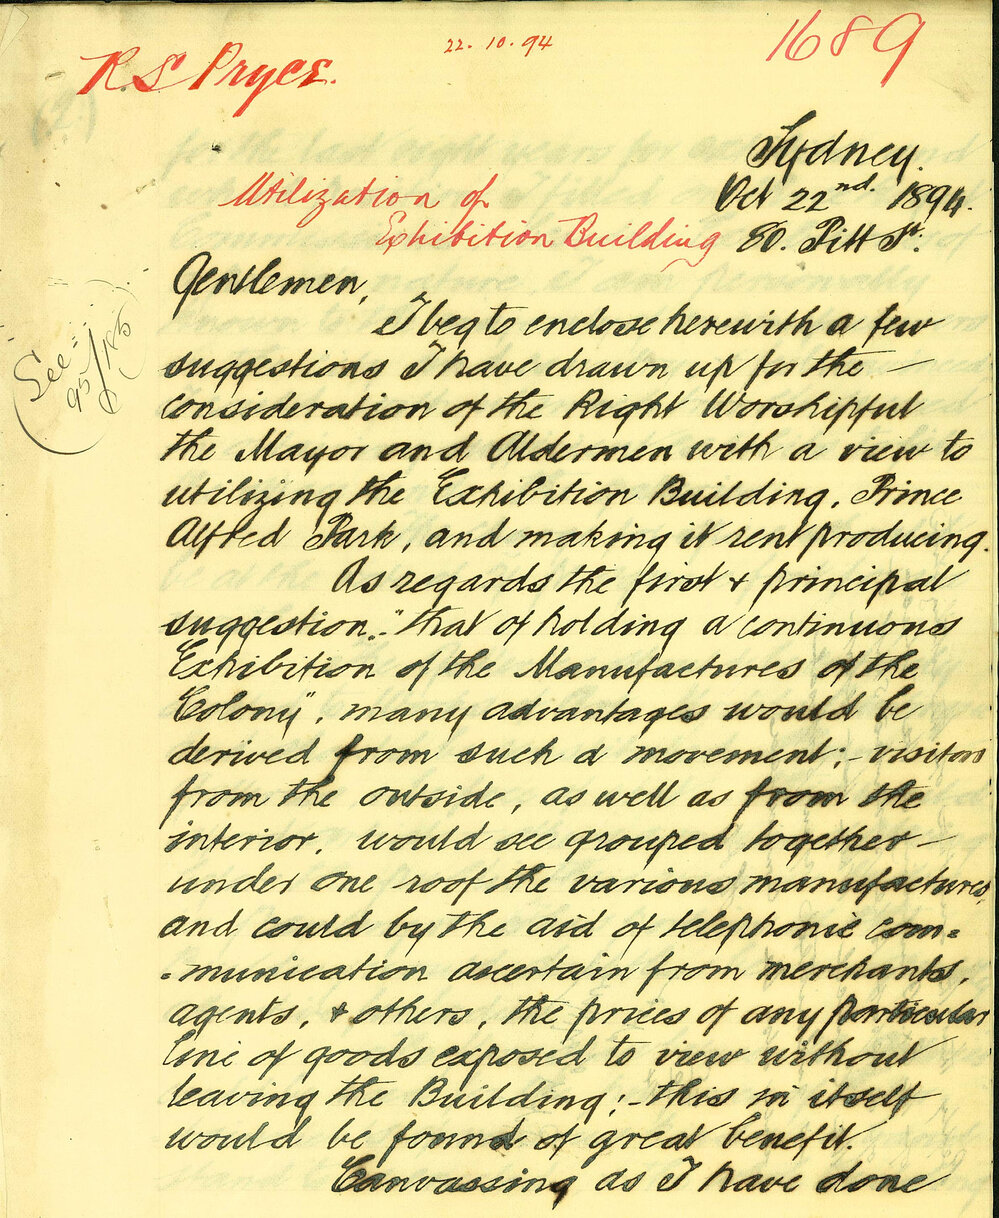 R. S. Pryce.
22. 10. 94
1689
Sydney.
Oct 22nd. 1894.
80. Pitt St.
Utilization of
Exhibition Building
See =
95/185
Gentlemen,
I beg to enclose herewith a few
suggestions I have drawn up for the —
consideration of the Right Worshipful
the Mayor and Aldermen with a view to
utilizing the Exhibition Building, Prince
Alfred Park, and making it rent producing.
As regards the first & principal
suggestion, "that of holding a continuous
Exhibition of the Manufactures of the
Colony", many advantages would be
derived from such a movement; - visitors
from the outside, as well as from the
interior, would see grouped together —
under one roof the various manufactures,
and could by the aid of telephonic com=
=munication ascertain from merchants,
agents, & others, the prices of any particular
line of goods exposed to view without
leaving the Building; - this in itself
would be found of great benefit.
Canvassing as I have done